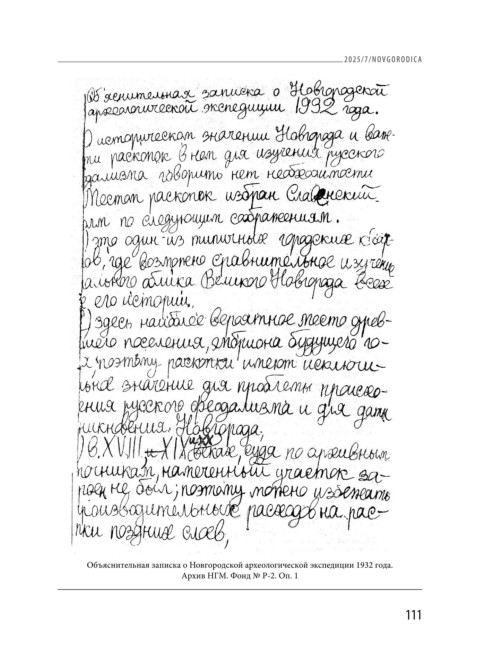 2025/7/NOVGORODICA
Объяснительная записка о Новгородской
археологической экспедиции 1932 года.
О историческом значении Новгорода и важ-
ти раскопок в нем для изучения русского
дализма говорить нет необхозимости
Местом раскопок избран Славенский
по следующим соображениям.
) это один из типичных городских
ов, где возможно сравнительное изучени
ального облика Великого Новгорода
его истории.
) здесь наиболее вероятное место древ-
него поселения, эмбриона будущего го-
поэтому раскопки имеют исключи-
льное значение для проблемы происхо-
ения русского феодализма и для даты
никновения Новгорода,
) в XVIII и XIX судя по архивным
точникам, намеченный участок за-
не был; поэтому можно избежать
производительных расходов на рас-
пки поздних слоев,
Объяснительная записка о Новгородской археологической экспедиции 1932 года.
Архив НГМ. Фонд № Р-2. Оп. 1
111